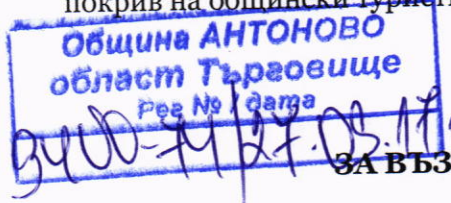 покрив на общински турист
Община АНТОНОВО
област Търговище
Рег № / дата
3400-74/27.03.17
ЗА ВЪЗ